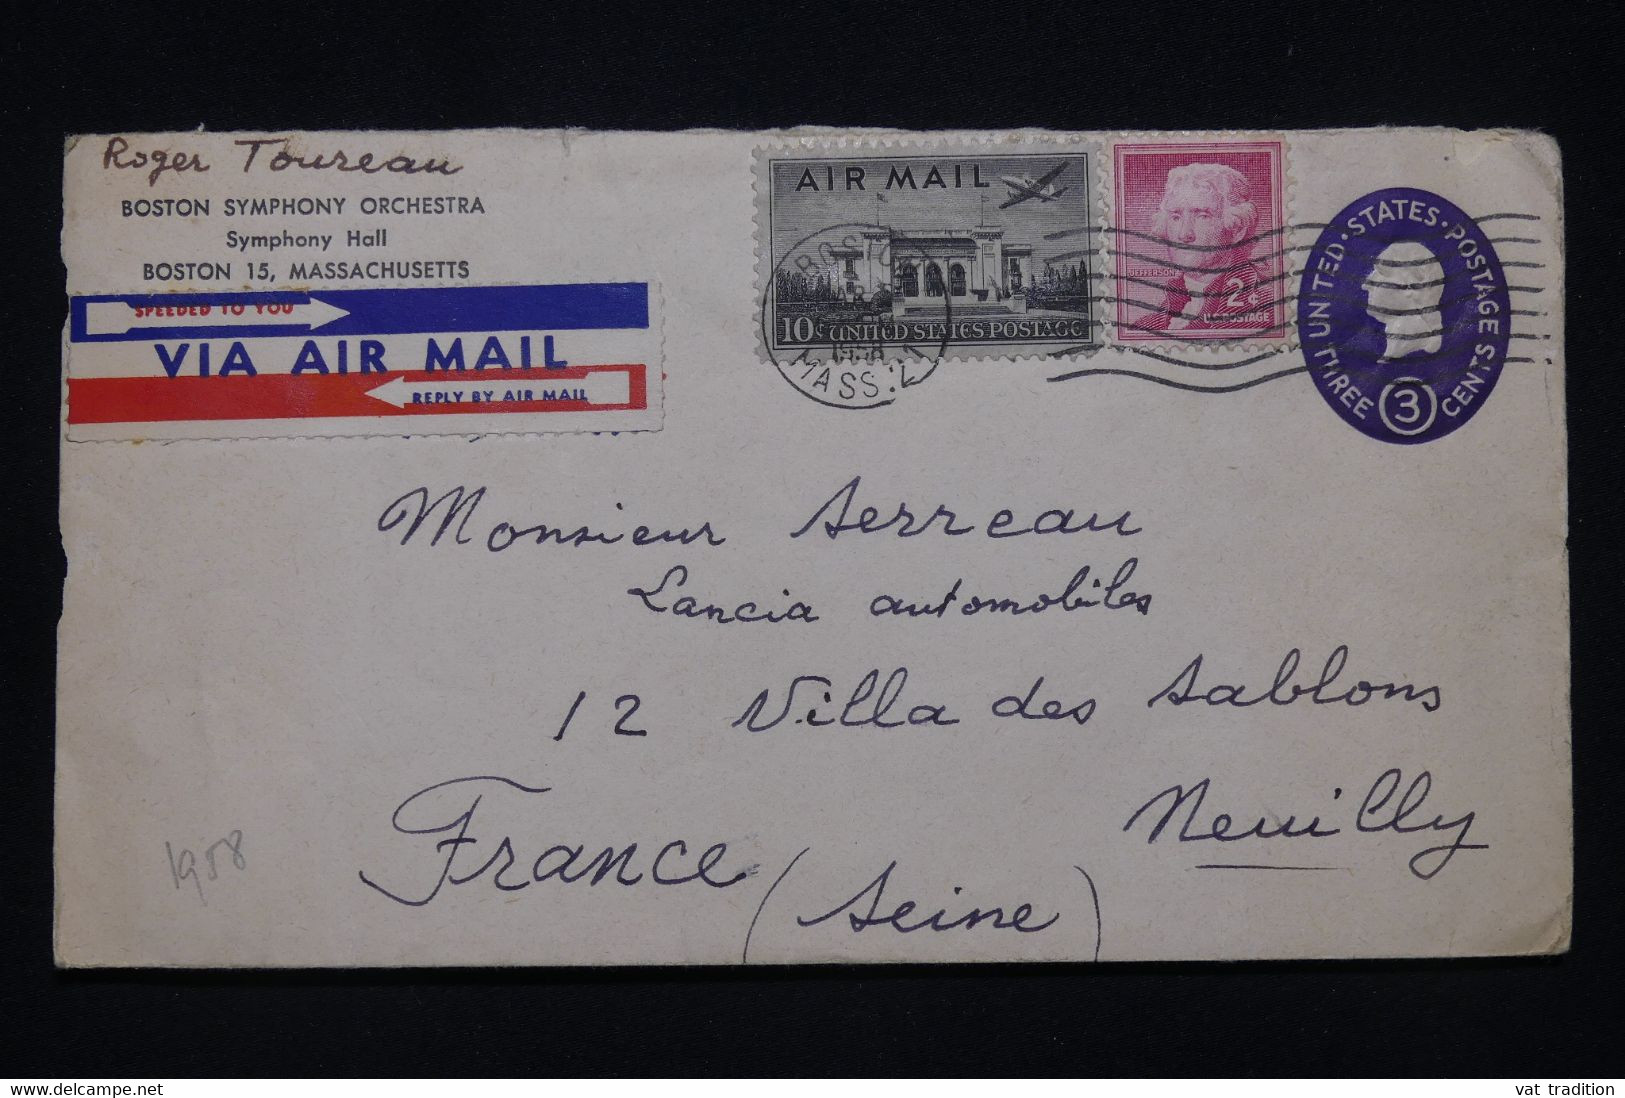 Roger Toureau
BOSTON SYMPHONY ORCHESTRA
Symphony Hall
BOSTON 15, MASSACHUSETTS
SPEEDED TO YOU
VIA AIR MAIL
REPLY BY AIR MAIL
AIR MAIL
10¢ UNITED STATES POSTAGE
BOSTON
1958
MASS.
JEFFERSON
2¢
U.S. POSTAGE
UNITED·STATES·POSTAGE
THREE 3 CENTS
Monsieur Serreau
Lancia automobiles
12 Villa des Sablons
Neuilly
France (Seine)
1958
vat tradition